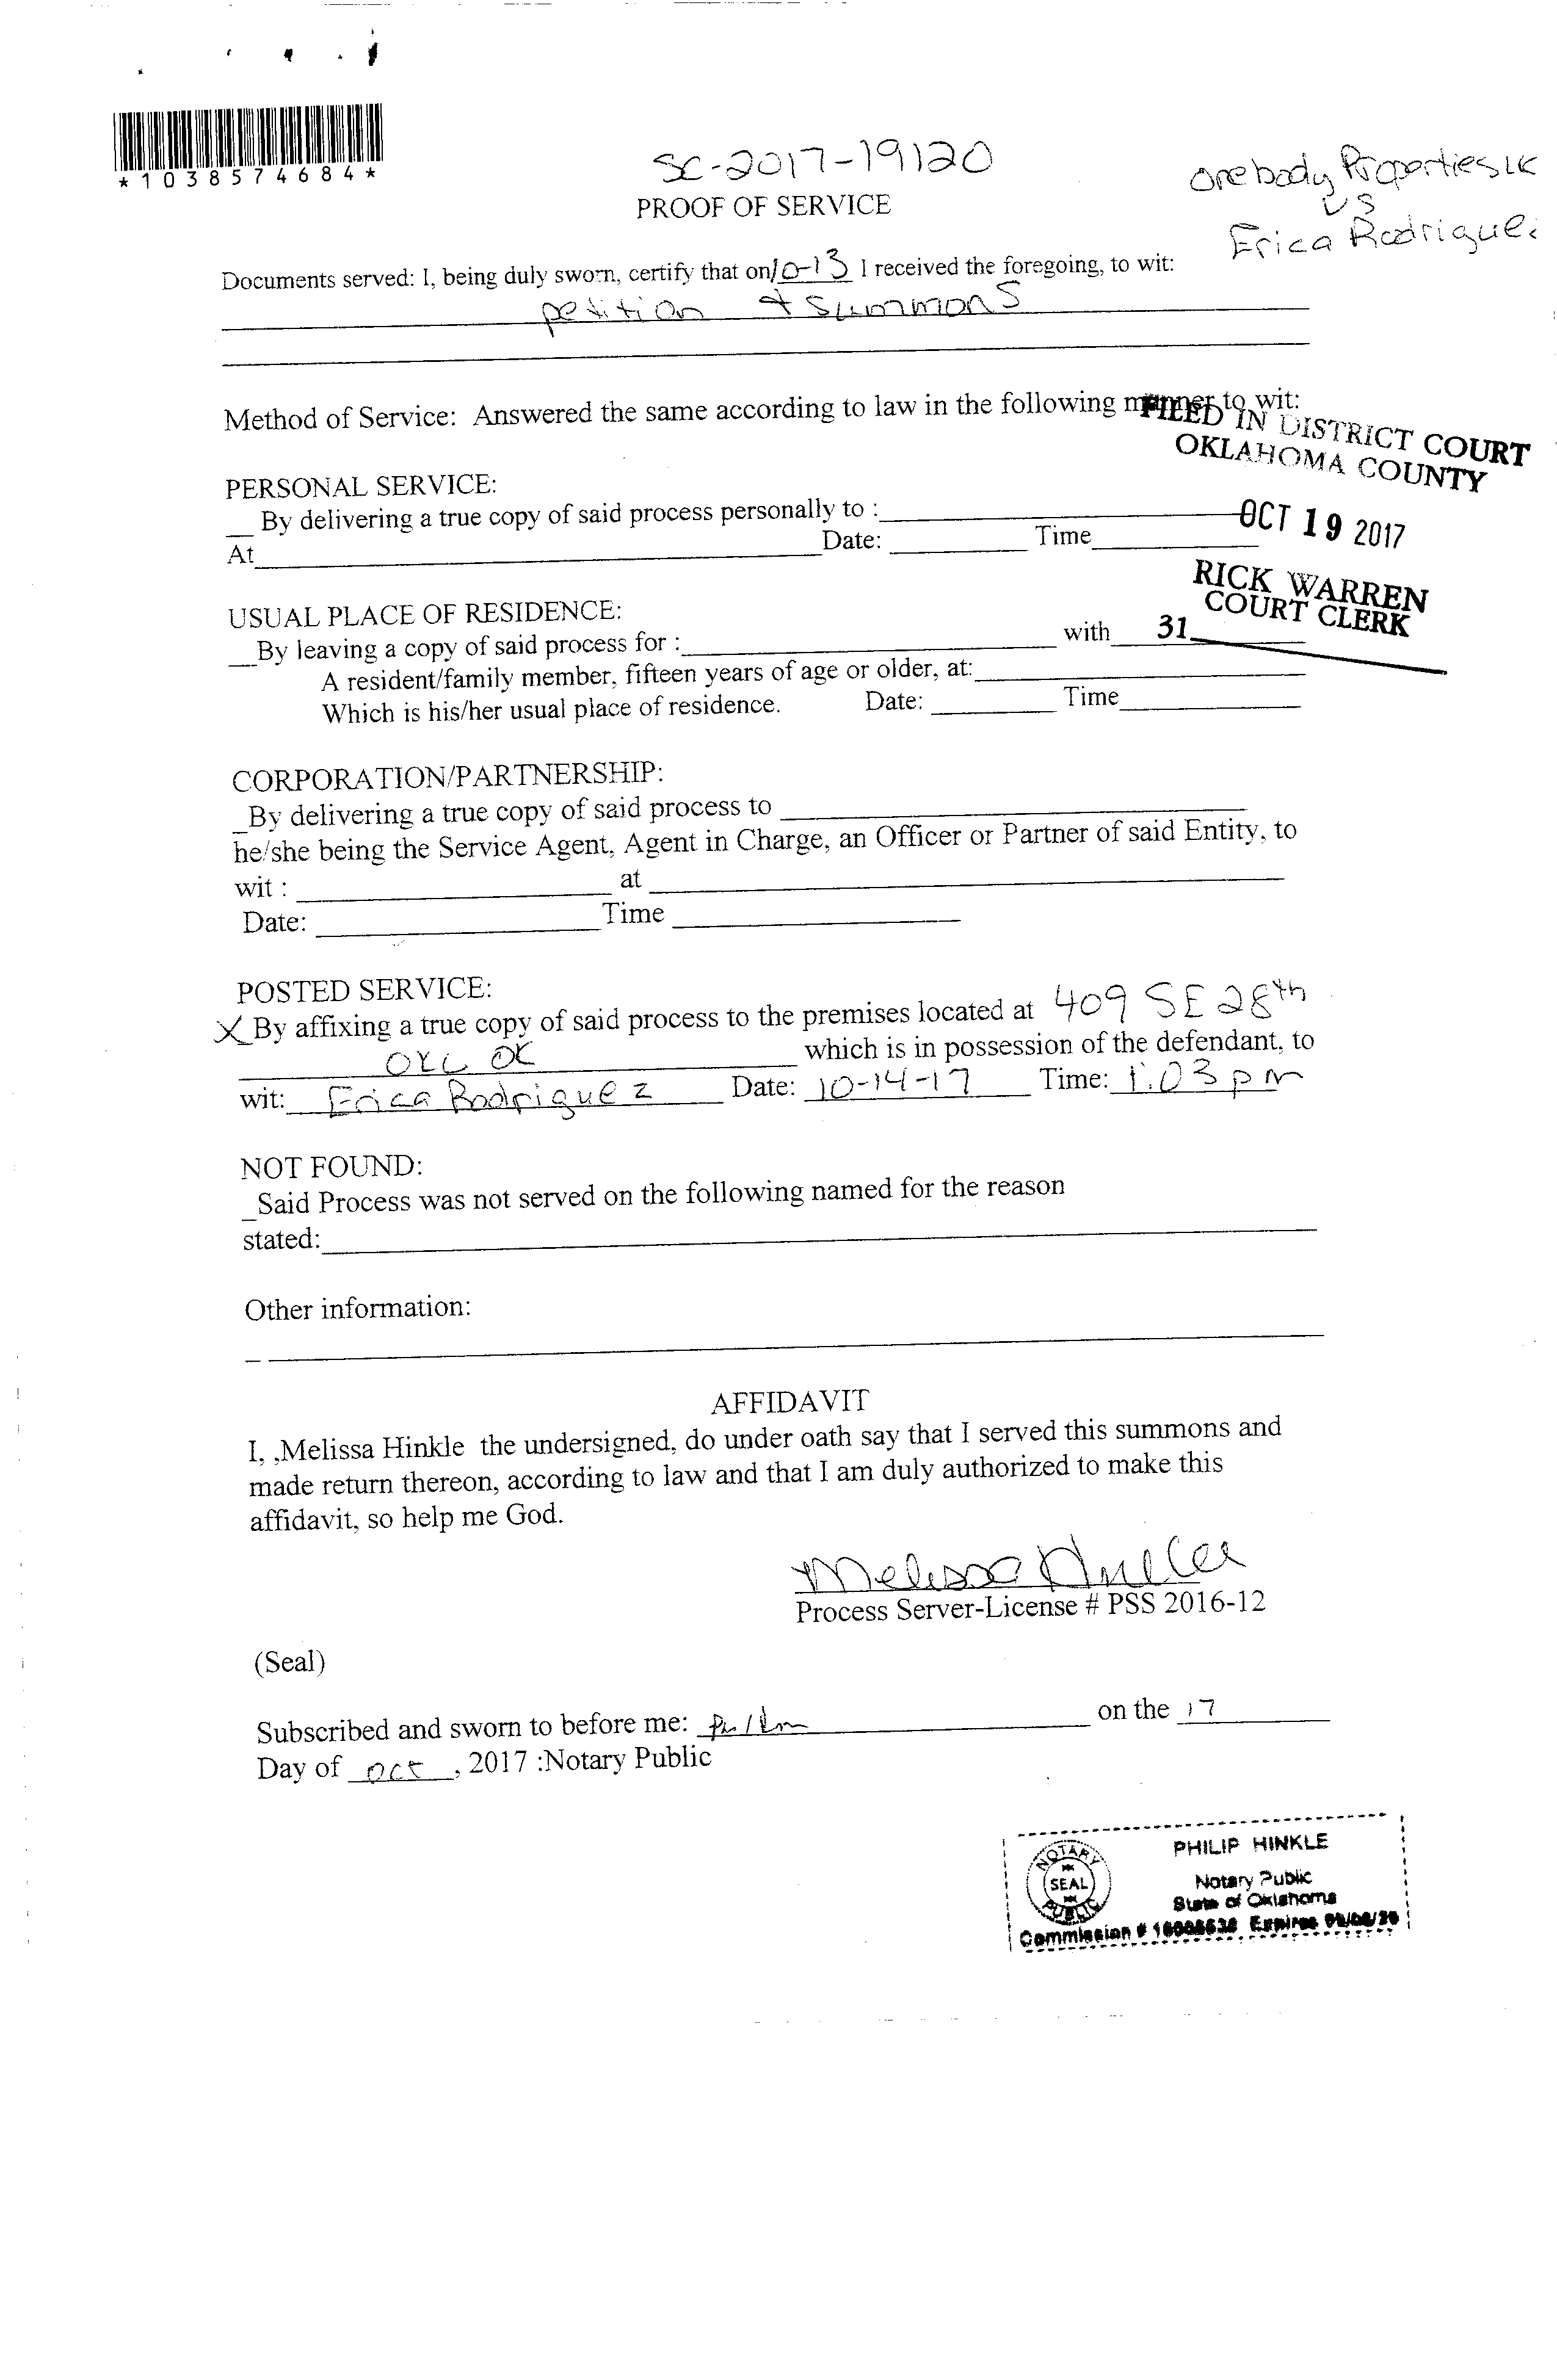 *1038574684*
SC-2017-19120
PROOF OF SERVICE
Orebody Properties LLC
vs
Erica Rodriguez
Documents served: I, being duly sworn, certify that on 10-13 I received the foregoing, to wit:
petition + summons
Method of Service: Answered the same according to law in the following manner to wit:
FILED IN DISTRICT COURT
OKLAHOMA COUNTY
PERSONAL SERVICE:
__ By delivering a true copy of said process personally to :
At Date: Time
OCT 19 2017
RICK WARREN
COURT CLERK
31
USUAL PLACE OF RESIDENCE:
__By leaving a copy of said process for : with
A resident/family member, fifteen years of age or older, at:
Which is his/her usual place of residence. Date: Time
CORPORATION/PARTNERSHIP:
_By delivering a true copy of said process to
he/she being the Service Agent, Agent in Charge, an Officer or Partner of said Entity, to
wit : at
Date: Time
POSTED SERVICE:
X By affixing a true copy of said process to the premises located at 409 SE 28th
OKC OK which is in possession of the defendant, to
wit: Erica Rodriguez Date: 10-14-17 Time: 1:03 pm
NOT FOUND:
_Said Process was not served on the following named for the reason
stated:
Other information:
AFFIDAVIT
I, ,Melissa Hinkle the undersigned, do under oath say that I served this summons and
made return thereon, according to law and that I am duly authorized to make this
affidavit, so help me God.
Melissa Hinkle
Process Server-License # PSS 2016-12
(Seal)
Subscribed and sworn to before me: on the 17
Day of Oct, 2017 :Notary Public
PHILIP HINKLE
NOTARY
SEAL
PUBLIC
Notary Public
State of Oklahoma
Commission # Expires